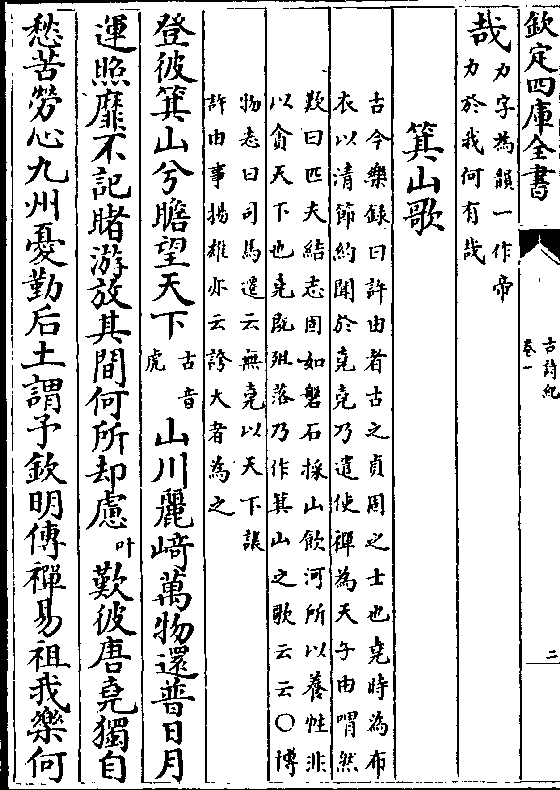 欽定四庫全書
古詩紀
卷一
二
哉力字為韻一作帝
力於我何有哉
箕山歌
古今樂録曰許由者古之貞固之士也堯時為布
衣以清節約聞於堯堯乃遣使禪為天子由喟然
歎曰匹夫結志固如磐石採山飲河所以養性非
以貪天下也堯既殂落乃作箕山之歌云云〇博
物志曰司馬遷云無堯以天下讓
許由事揚雄亦云誇大者為之
登彼箕山兮瞻望天下古音虎山川麗﨑萬物還普日月
運照靡不記睹游放其間何所却慮叶歎彼唐堯獨自
愁苦勞心九州憂勤后土謂予欽明傳禪易祖我樂何